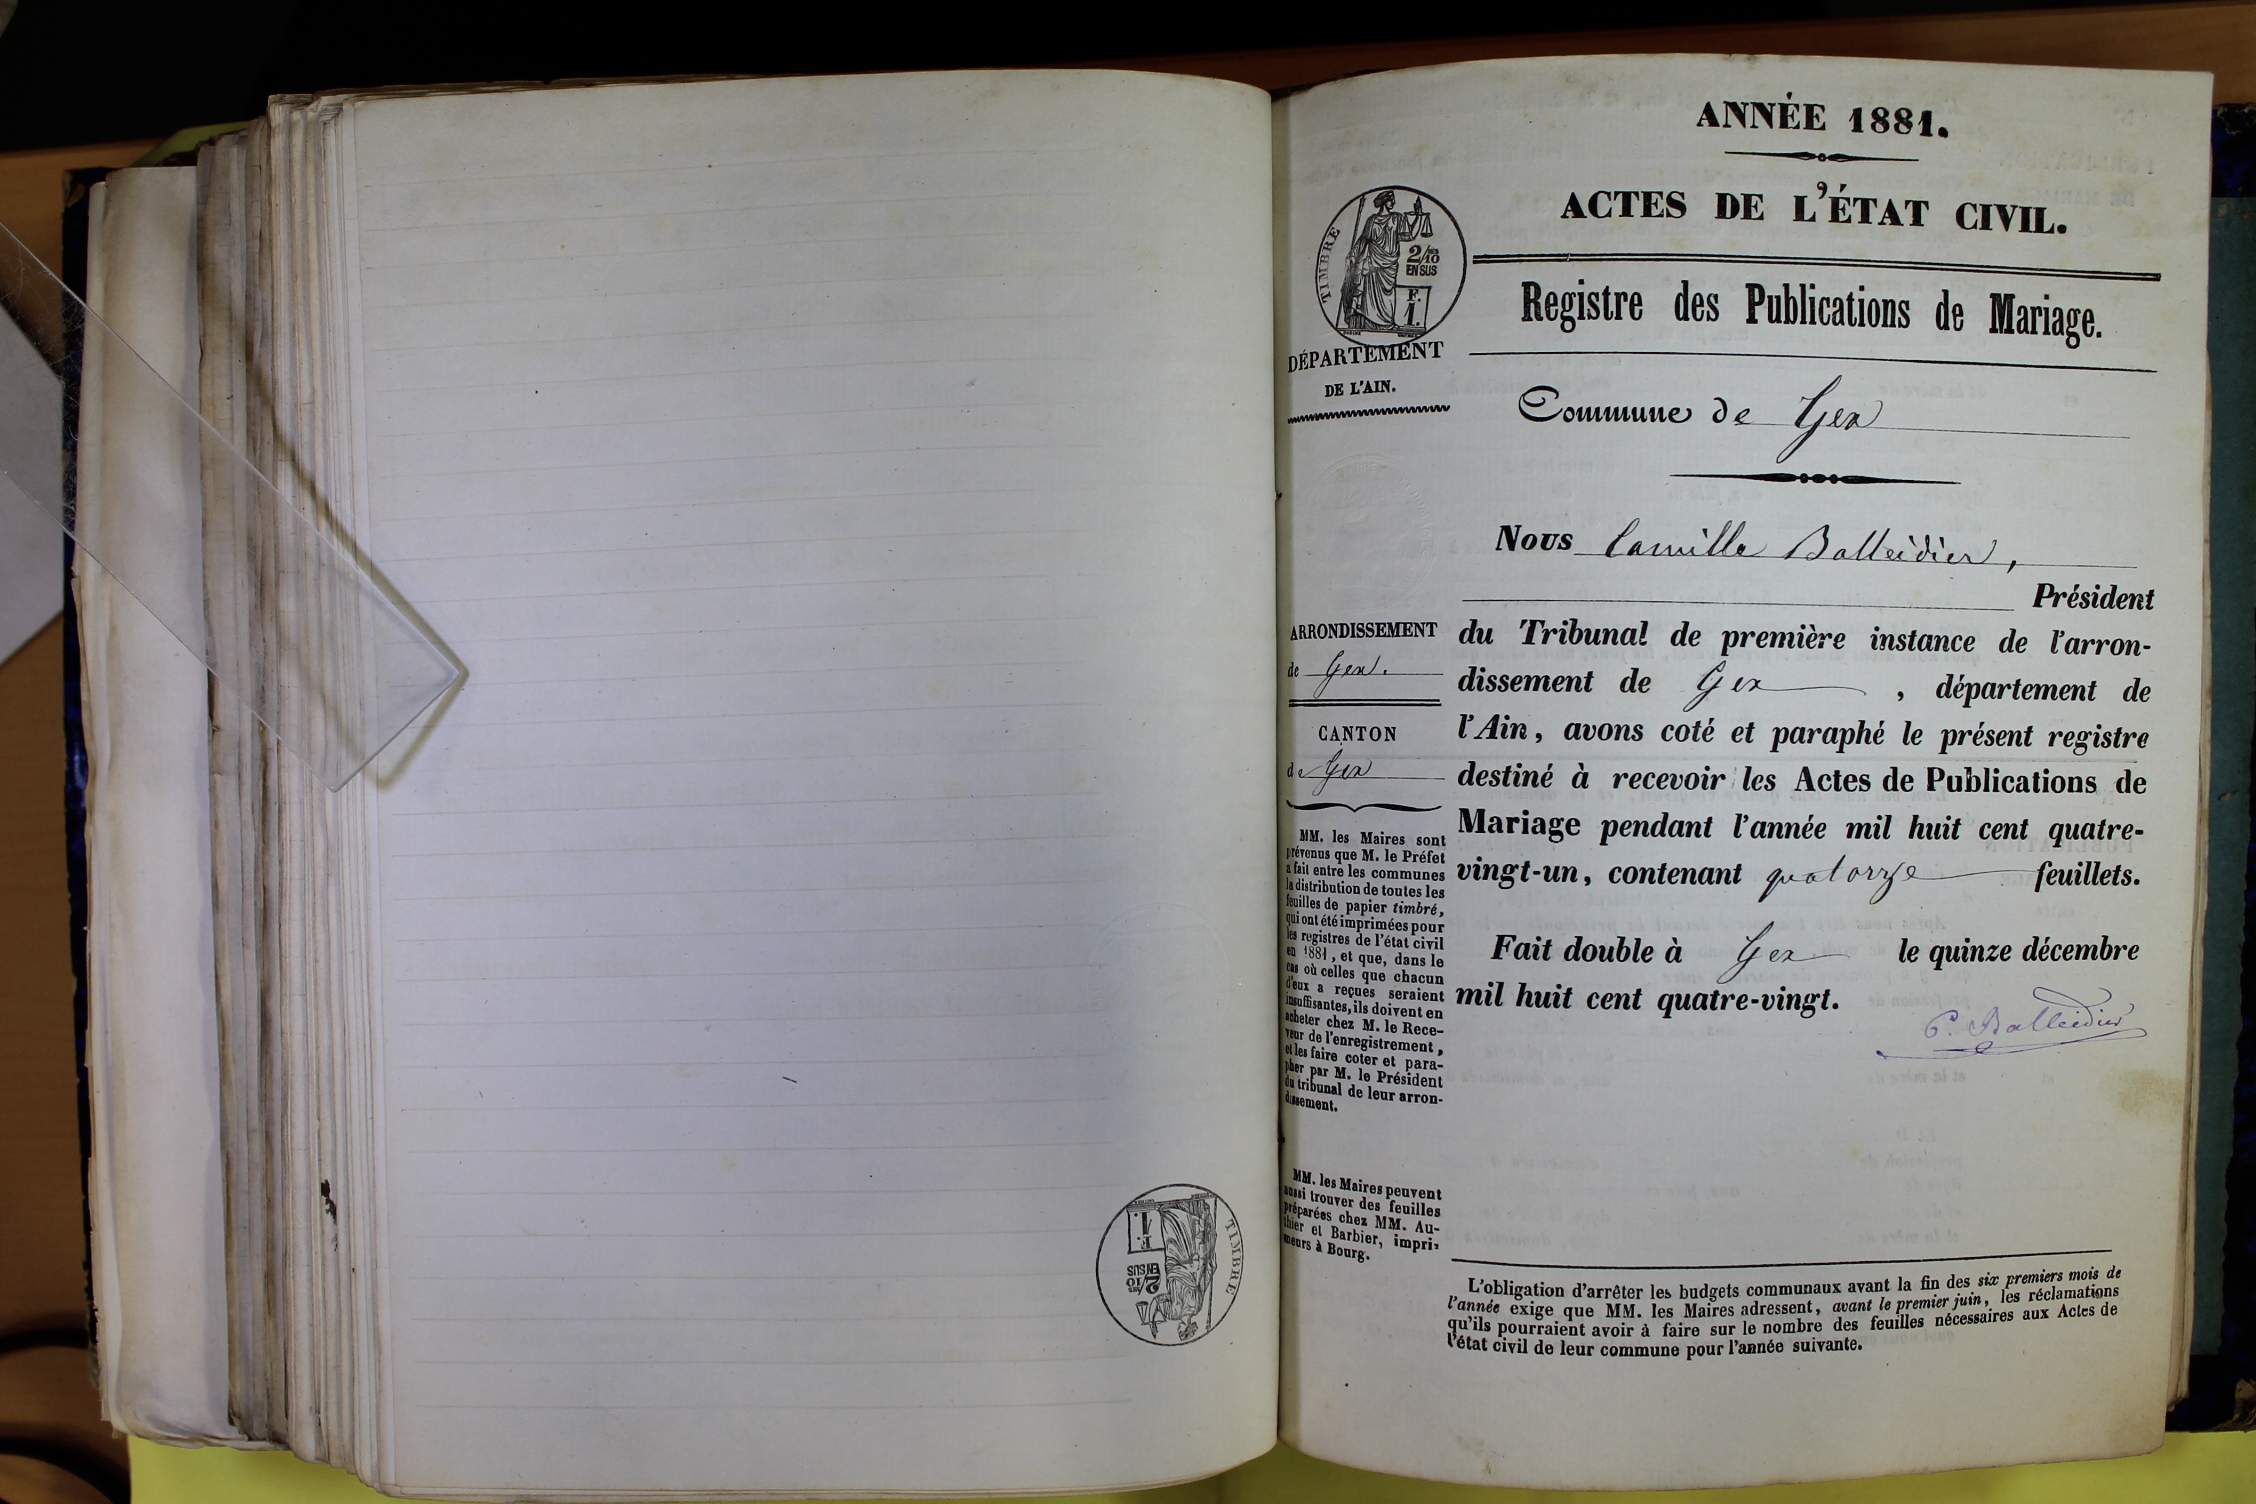 ANNÉE 1881.
ACTES DE L'ÉTAT CIVIL.
TIMBRE
2/10
EN SUS
F.
1.
Registre des Publications de Mariage.
DÉPARTEMENT
DE L'AIN.
Commune de Gex
Nous Camille Balleidier,
Président
du Tribunal de première instance de l'arron-
dissement de Gex , département de
l'Ain, avons coté et paraphé le présent registre
destiné à recevoir les Actes de Publications de
Mariage pendant l'année mil huit cent quatre-
vingt-un, contenant quatorze feuillets.
Fait double à Gex le quinze décembre
mil huit cent quatre-vingt.
C. Balleidier
ARRONDISSEMENT
de Gex.
CANTON
de Gex
MM. les Maires sont
prévenus que M. le Préfet
a fait entre les communes
la distribution de toutes les
feuilles de papier timbré,
qui ont été imprimées pour
les registres de l'état civil
en 1881, et que, dans le
cas où celles que chacun
d'eux a reçues seraient
insuffisantes, ils doivent en
acheter chez M. le Rece-
veur de l'enregistrement,
et les faire coter et para-
pher par M. le Président
du tribunal de leur arron-
dissement.
MM. les Maires peuvent
aussi trouver des feuilles
préparées chez MM. Au-
thier et Barbier, impri-
meurs à Bourg.
L'obligation d'arrêter les budgets communaux avant la fin des six premiers mois de
l'année exige que MM. les Maires adressent, avant le premier juin, les réclamations
qu'ils pourraient avoir à faire sur le nombre des feuilles nécessaires aux Actes de
l'état civil de leur commune pour l'année suivante.
TIMBRE
2/10
EN SUS
F.
1.